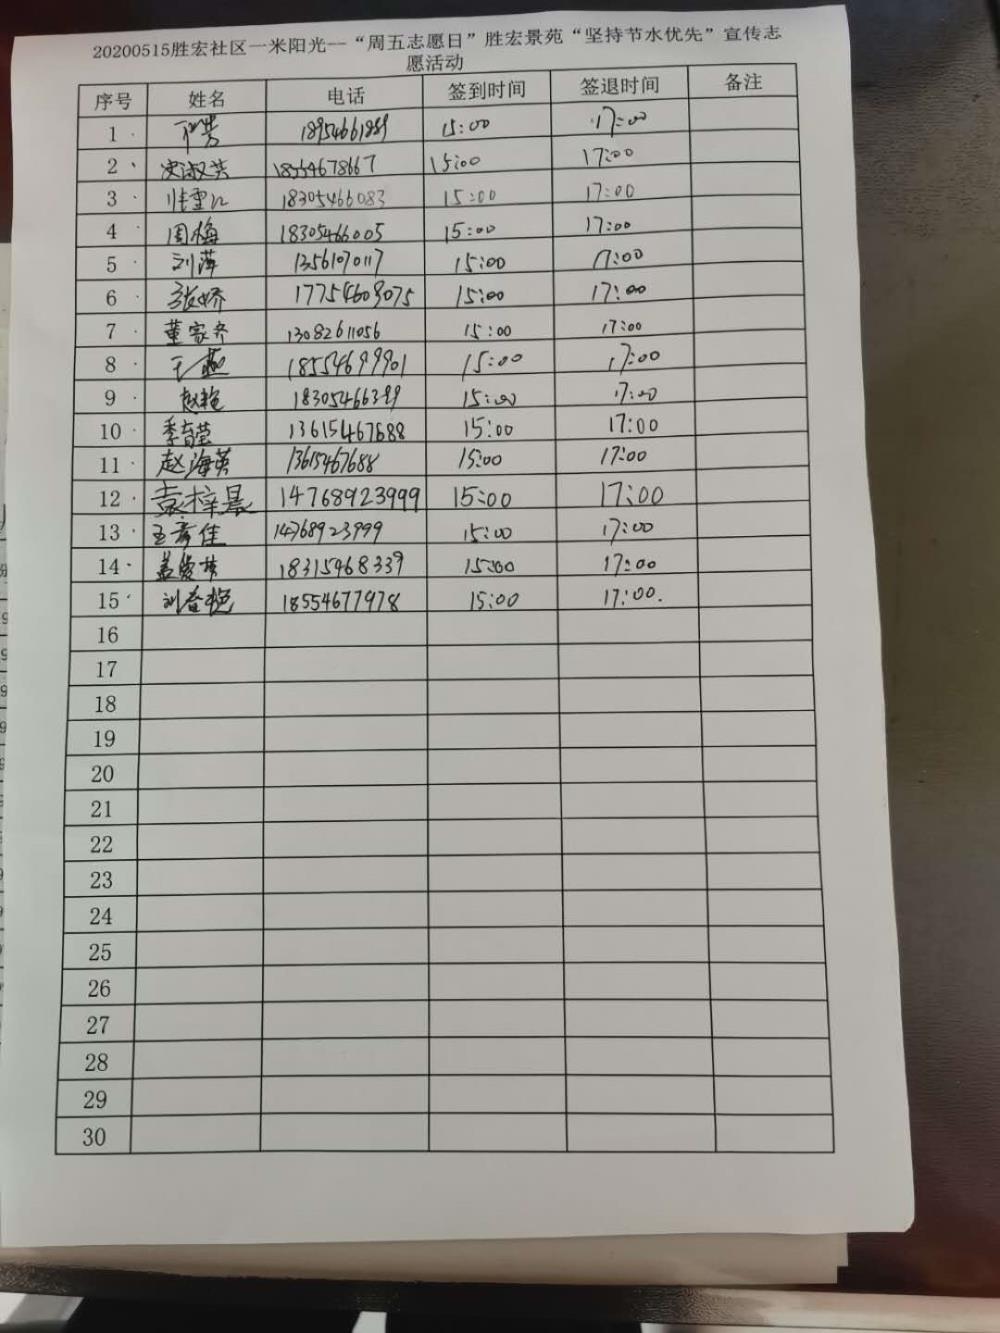 20200515胜宏社区一米阳光--“周五志愿日”胜宏景苑“坚持节水优先”宣传志
愿活动
序号 姓名 电话 签到时间 签退时间 备注
1 15:00 17:00
2 18554678667 15:00 17:00
3 18305466083 15:00 17:00
4 周梅 18305466005 15:00 17:00
5 刘萍 13561070117 15:00 17:00
6 张娇 17754609075 15:00 17:00
7 董家齐 13082611056 15:00 17:00
8 王燕 18554699901 15:00 17:00
9 赵艳 18305466399 15:00 17:00
10 季育莹 13615467688 15:00 17:00
11 赵海英 13615467688 15:00 17:00
12 袁梓晨 14768923999 15:00 17:00
13 王彦佳 14768923999 15:00 17:00
14 18315468339 15:00 17:00
15 刘春艳 18554677978 15:00 17:00.
16
17
18
19
20
21
22
23
24
25
26
27
28
29
30